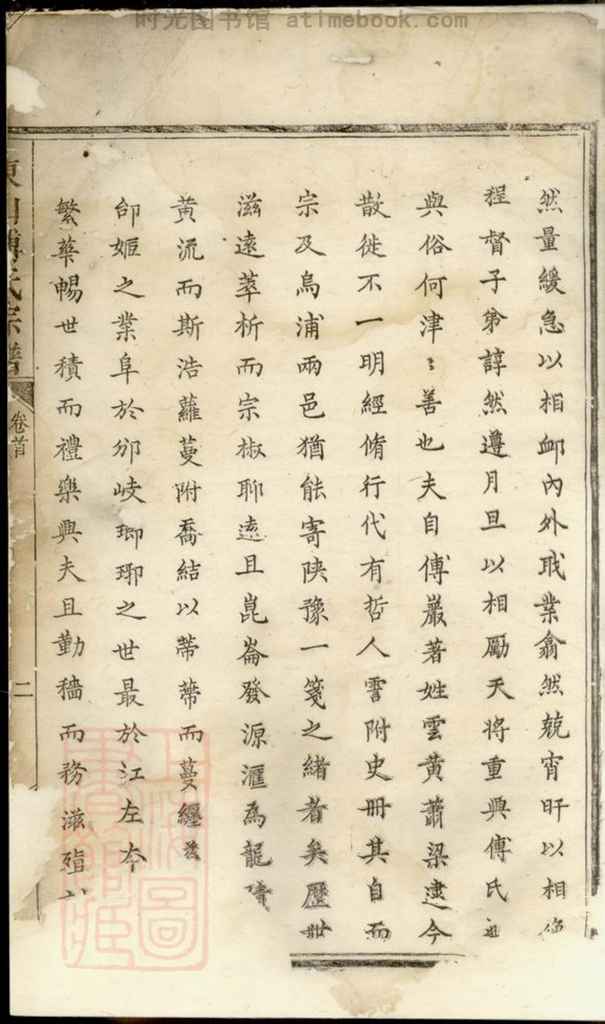 时光图书馆 atimebook.com
然量緩急以相衈內外戢業翕然兢宵旰以相
程督子弟諄然遵月旦以相勵天将重興傅氏
與俗何津〻善也夫自傅巖著姓雲黄蕭梁逮今
散徙不一明經脩行代有哲人霅附史冊其自而
宗及烏浦兩邑猶能寄陕豫一箋之緒者矣歷世
滋遠萃析而宗椒聊遠且崑崙發源滙為龍
黄流而斯浩蘿蔓附喬結以蒂蒂而蔓纒
邰姬之業阜於邠岐瑯琊之世最於江左夲
繁華暢世積而禮樂興夫且勤穡而務滋殖
東山傅氏宗譜
卷首
二
上海圖書館藏